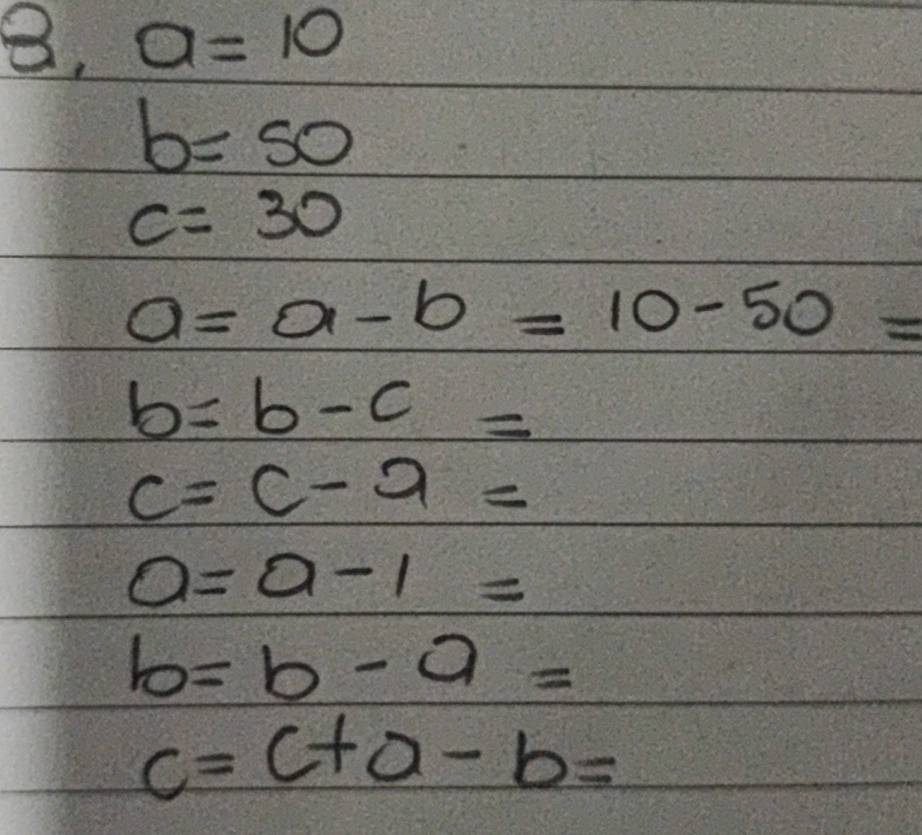 8, a = 10
b = 50
c = 30
a = a - b = 10 - 50 =
b = b - c =
c = c - a =
a = a - 1 =
b = b - a =
c = c + a - b =